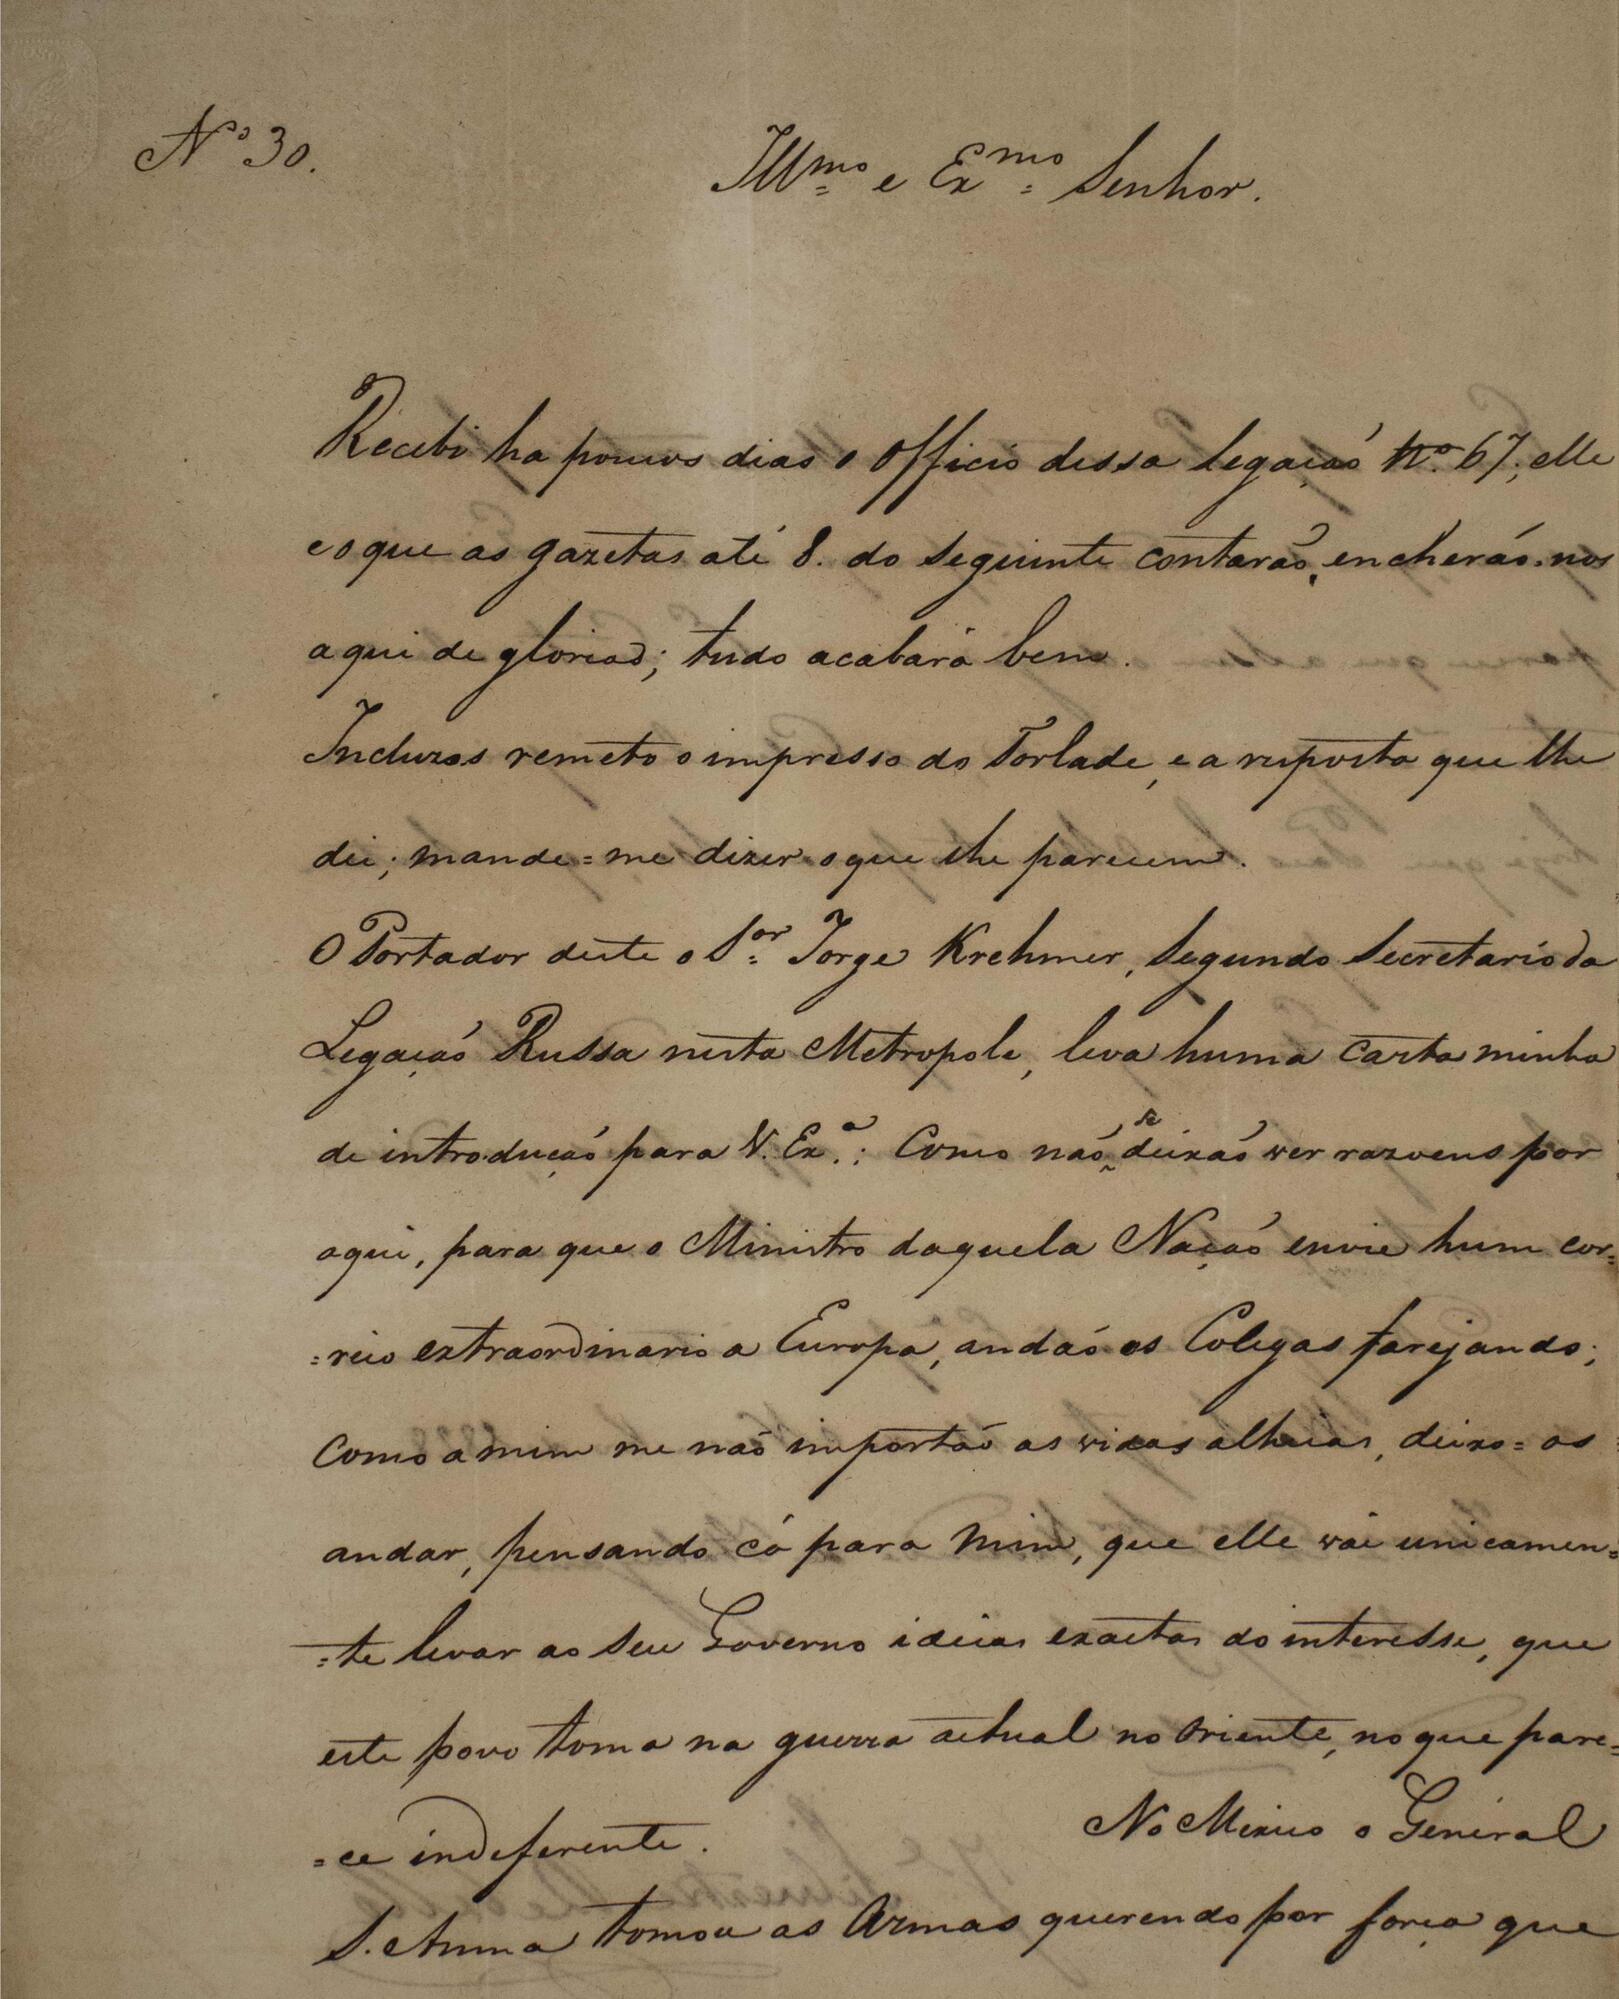 Nº 30.
Illmo e Exmo Senhor.
Recebi ha poucos dias o Officio dessa Legaçaõ Nº 67; elle
e o que as gazetas até 8. do seguinte contaraõ, encheráõ-nos
aqui de glorias; tudo acabará bem.
Incluzos remeto o impresso do Torlade, e a resposta que lhe
dei; mande=me dizer o que lhe parecem.
O Portador deste o Sor Jorge Krehmer, Segundo Secretario da
Legaçaõ Russa nesta Metropole, leva huma carta minha
de introducçaõ para V. Exa.: Como naõ se deixaõ ver razoens por
aqui, para que o Ministro daquela Naçaõ envie hum cor=
=reio extraordinario a Europa, andaõ os Colegas farejando;
Como a mim me naõ importaõ as vidas alheias, deixo=os
andar, pensando cá para mim, que elle vai unicamen=
=te levar ao seu Governo ideias exactas do interesse, que
este povo toma na guerra actual no Oriente, no que pare=
=ce indeferente. No Mexico o General
S. Anna tomou as Armas querendo por força que